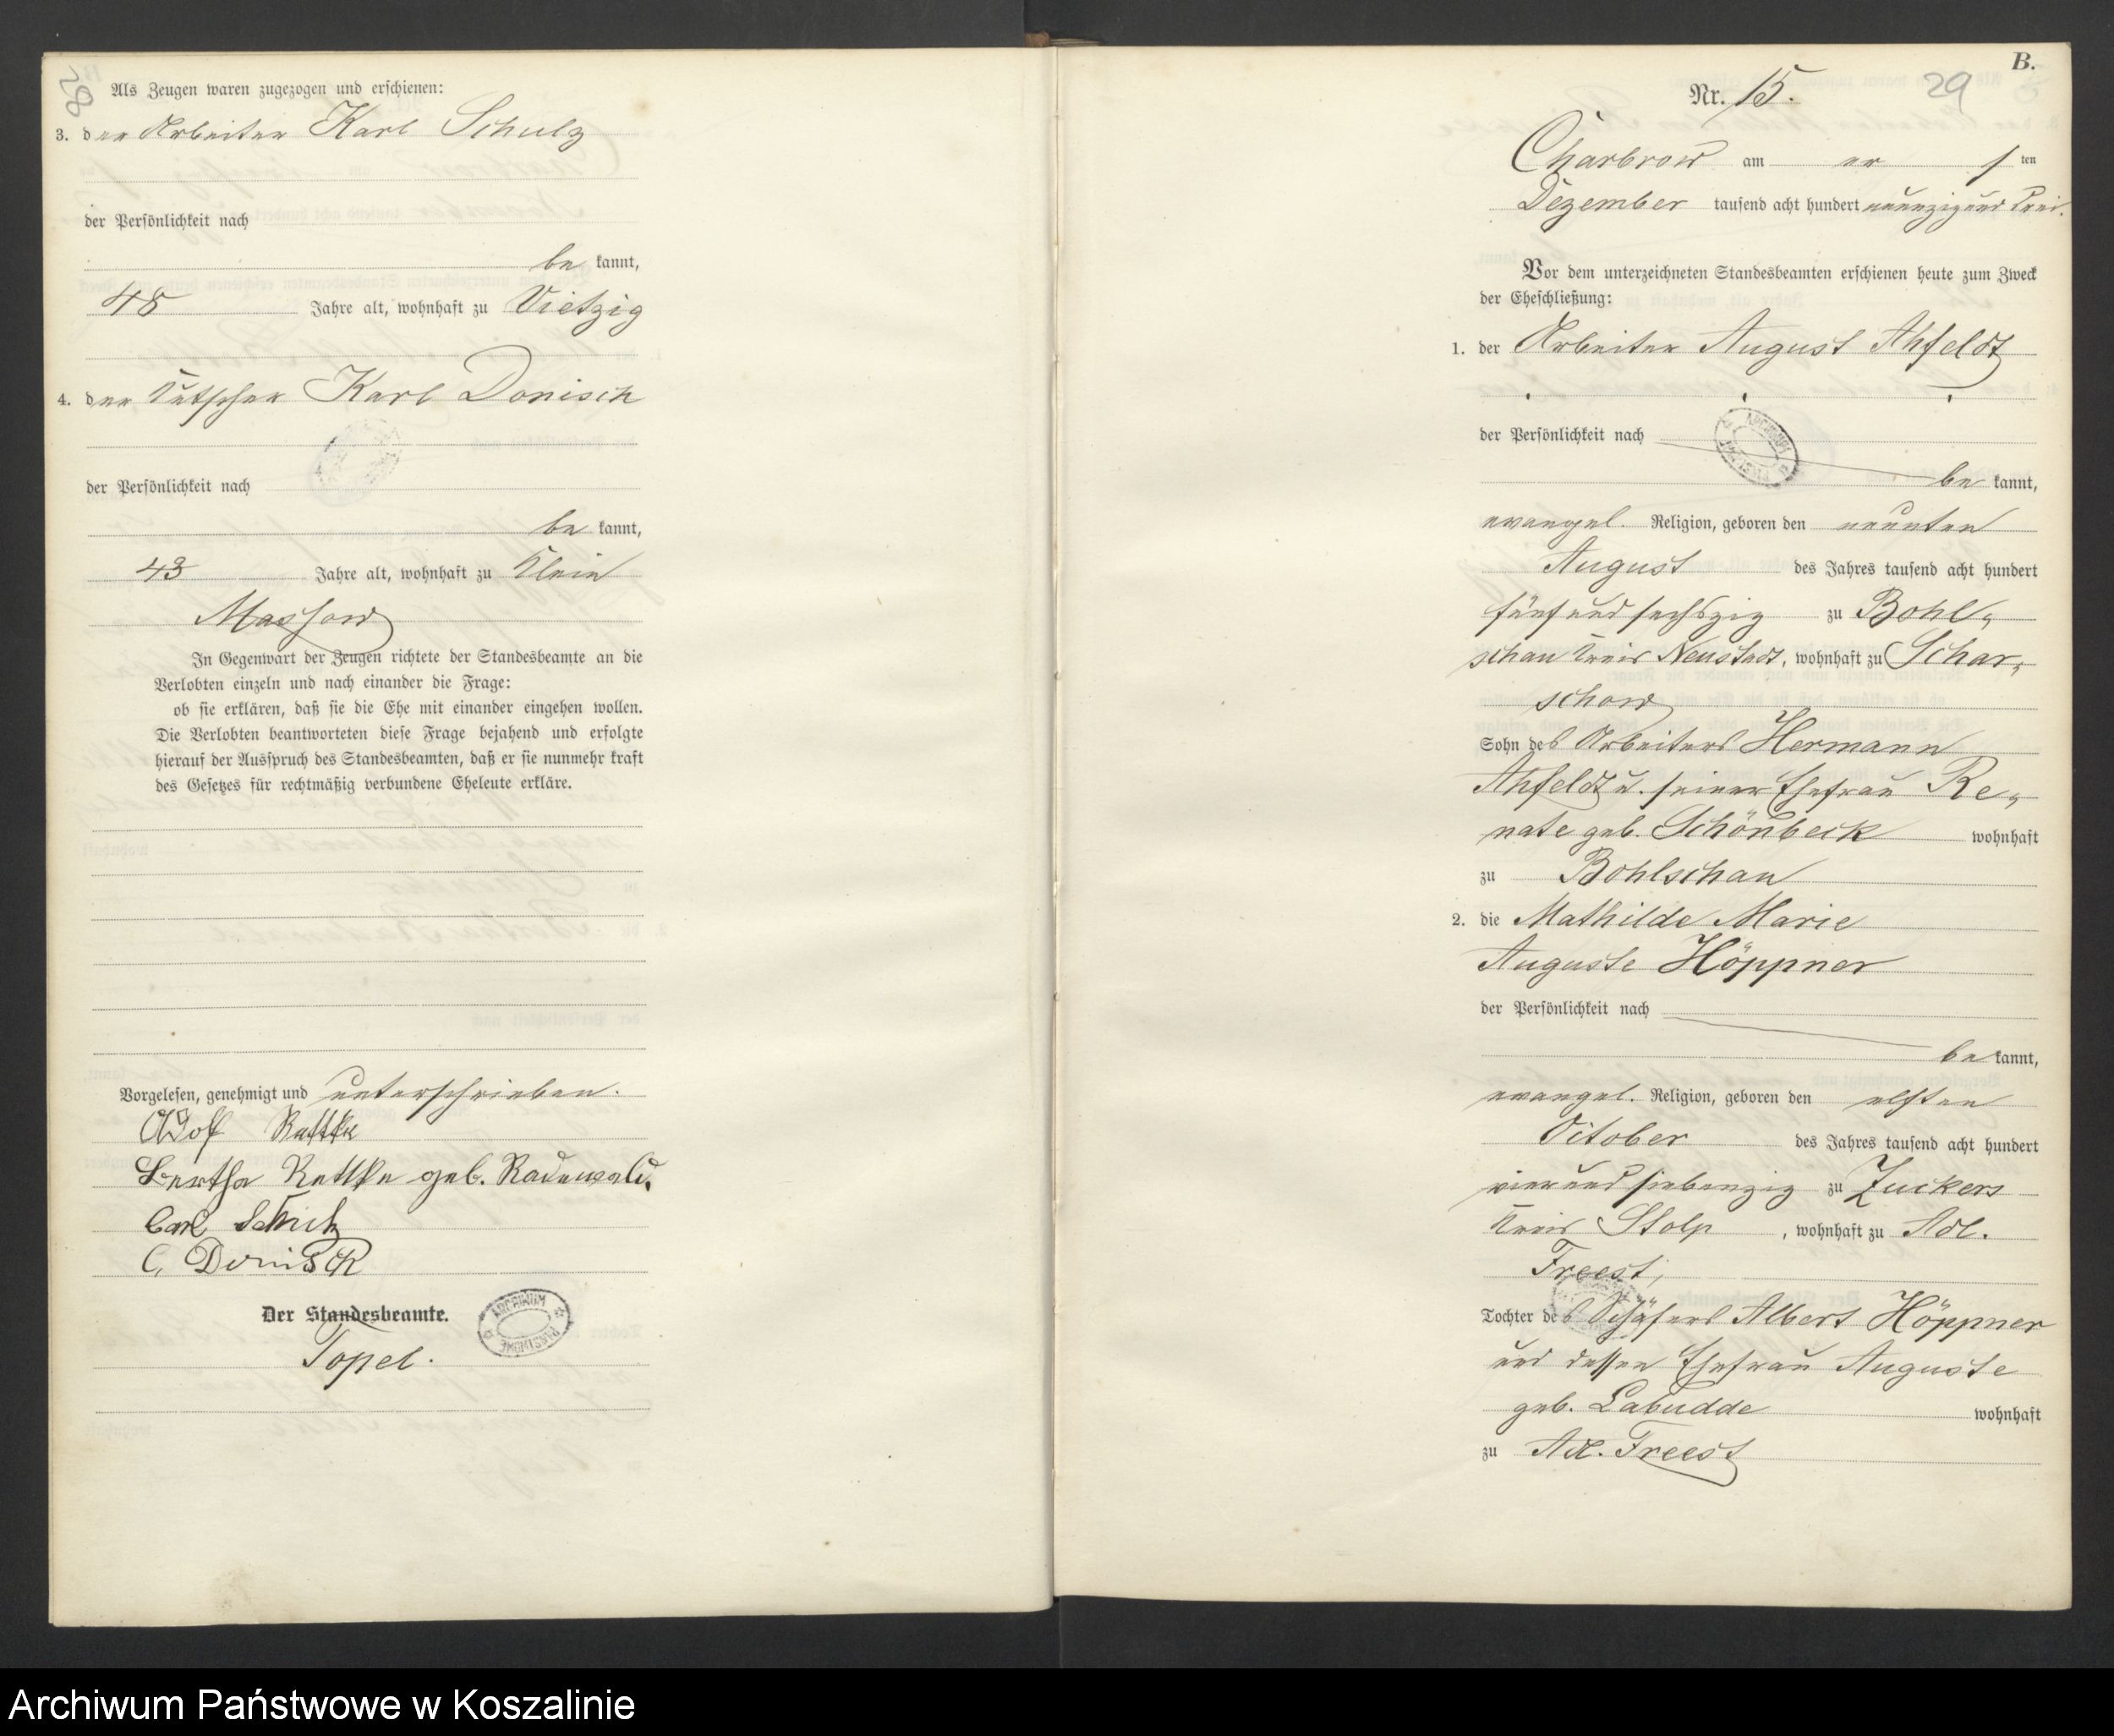 28
Als Zeugen waren zugezogen und erschienen:
3. der Arbeiter Karl Schulz
der Persönlichkeit nach
be kannt,
48 Jahre alt, wohnhaft zu Vietzig
4. der Kutscher Karl Donisch
der Persönlichkeit nach
be kannt,
43 Jahre alt, wohnhaft zu Klein
Massow
In Gegenwart der Zeugen richtete der Standesbeamte an die
Verlobten einzeln und nach einander die Frage:
ob sie erklären, daß sie die Ehe mit einander eingehen wollen.
Die Verlobten beantworteten diese Frage bejahend und erfolgte
hierauf der Ausspruch des Standesbeamten, daß er sie nunmehr kraft
des Gesetzes für rechtmäßig verbundene Eheleute erkläre.
Vorgelesen, genehmigt und unterschrieben.
Adolf Rettke
Bertha Rettke geb. Radewald.
Carl Schulz
C. Donisch
Der Standesbeamte.
ARCHIWUM PAŃSTWOWE
Topel.
B.
Nr. 15. 29
Charbrow am er 1 ten
Dezember tausend acht hundert neunzig und drei.
Vor dem unterzeichneten Standesbeamten erschienen heute zum Zweck
der Eheschließung:
1. der Arbeiter August Ahfeldt
der Persönlichkeit nach
be kannt,
evangel. Religion, geboren den neunten
August des Jahres tausend acht hundert
fünf und sechszig zu Bohl-
schau Kreis Neustadt, wohnhaft zu Schar-
schow
Sohn des Arbeiters Hermann
Ahfeldt u. seiner Ehefrau Re-
nate geb. Schönbeck wohnhaft
zu Bohlschau
2. die Mathilde Marie
Auguste Höppner
der Persönlichkeit nach
be kannt,
evangel. Religion, geboren den elften
October des Jahres tausend acht hundert
vier und siebenzig zu Zuckers
Kreis Stolp, wohnhaft zu Adl.
Freest,
Tochter des Schäfers Albert Höppner
und dessen Ehefrau Auguste
geb. Labudde wohnhaft
zu Adl. Freest
Archiwum Państwowe w Koszalinie